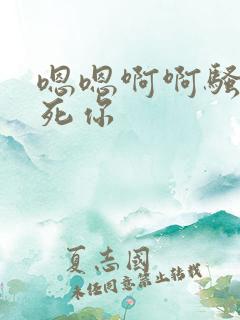 嗯嗯啊啊骚
死你
夏志國
未任同意禁止转载